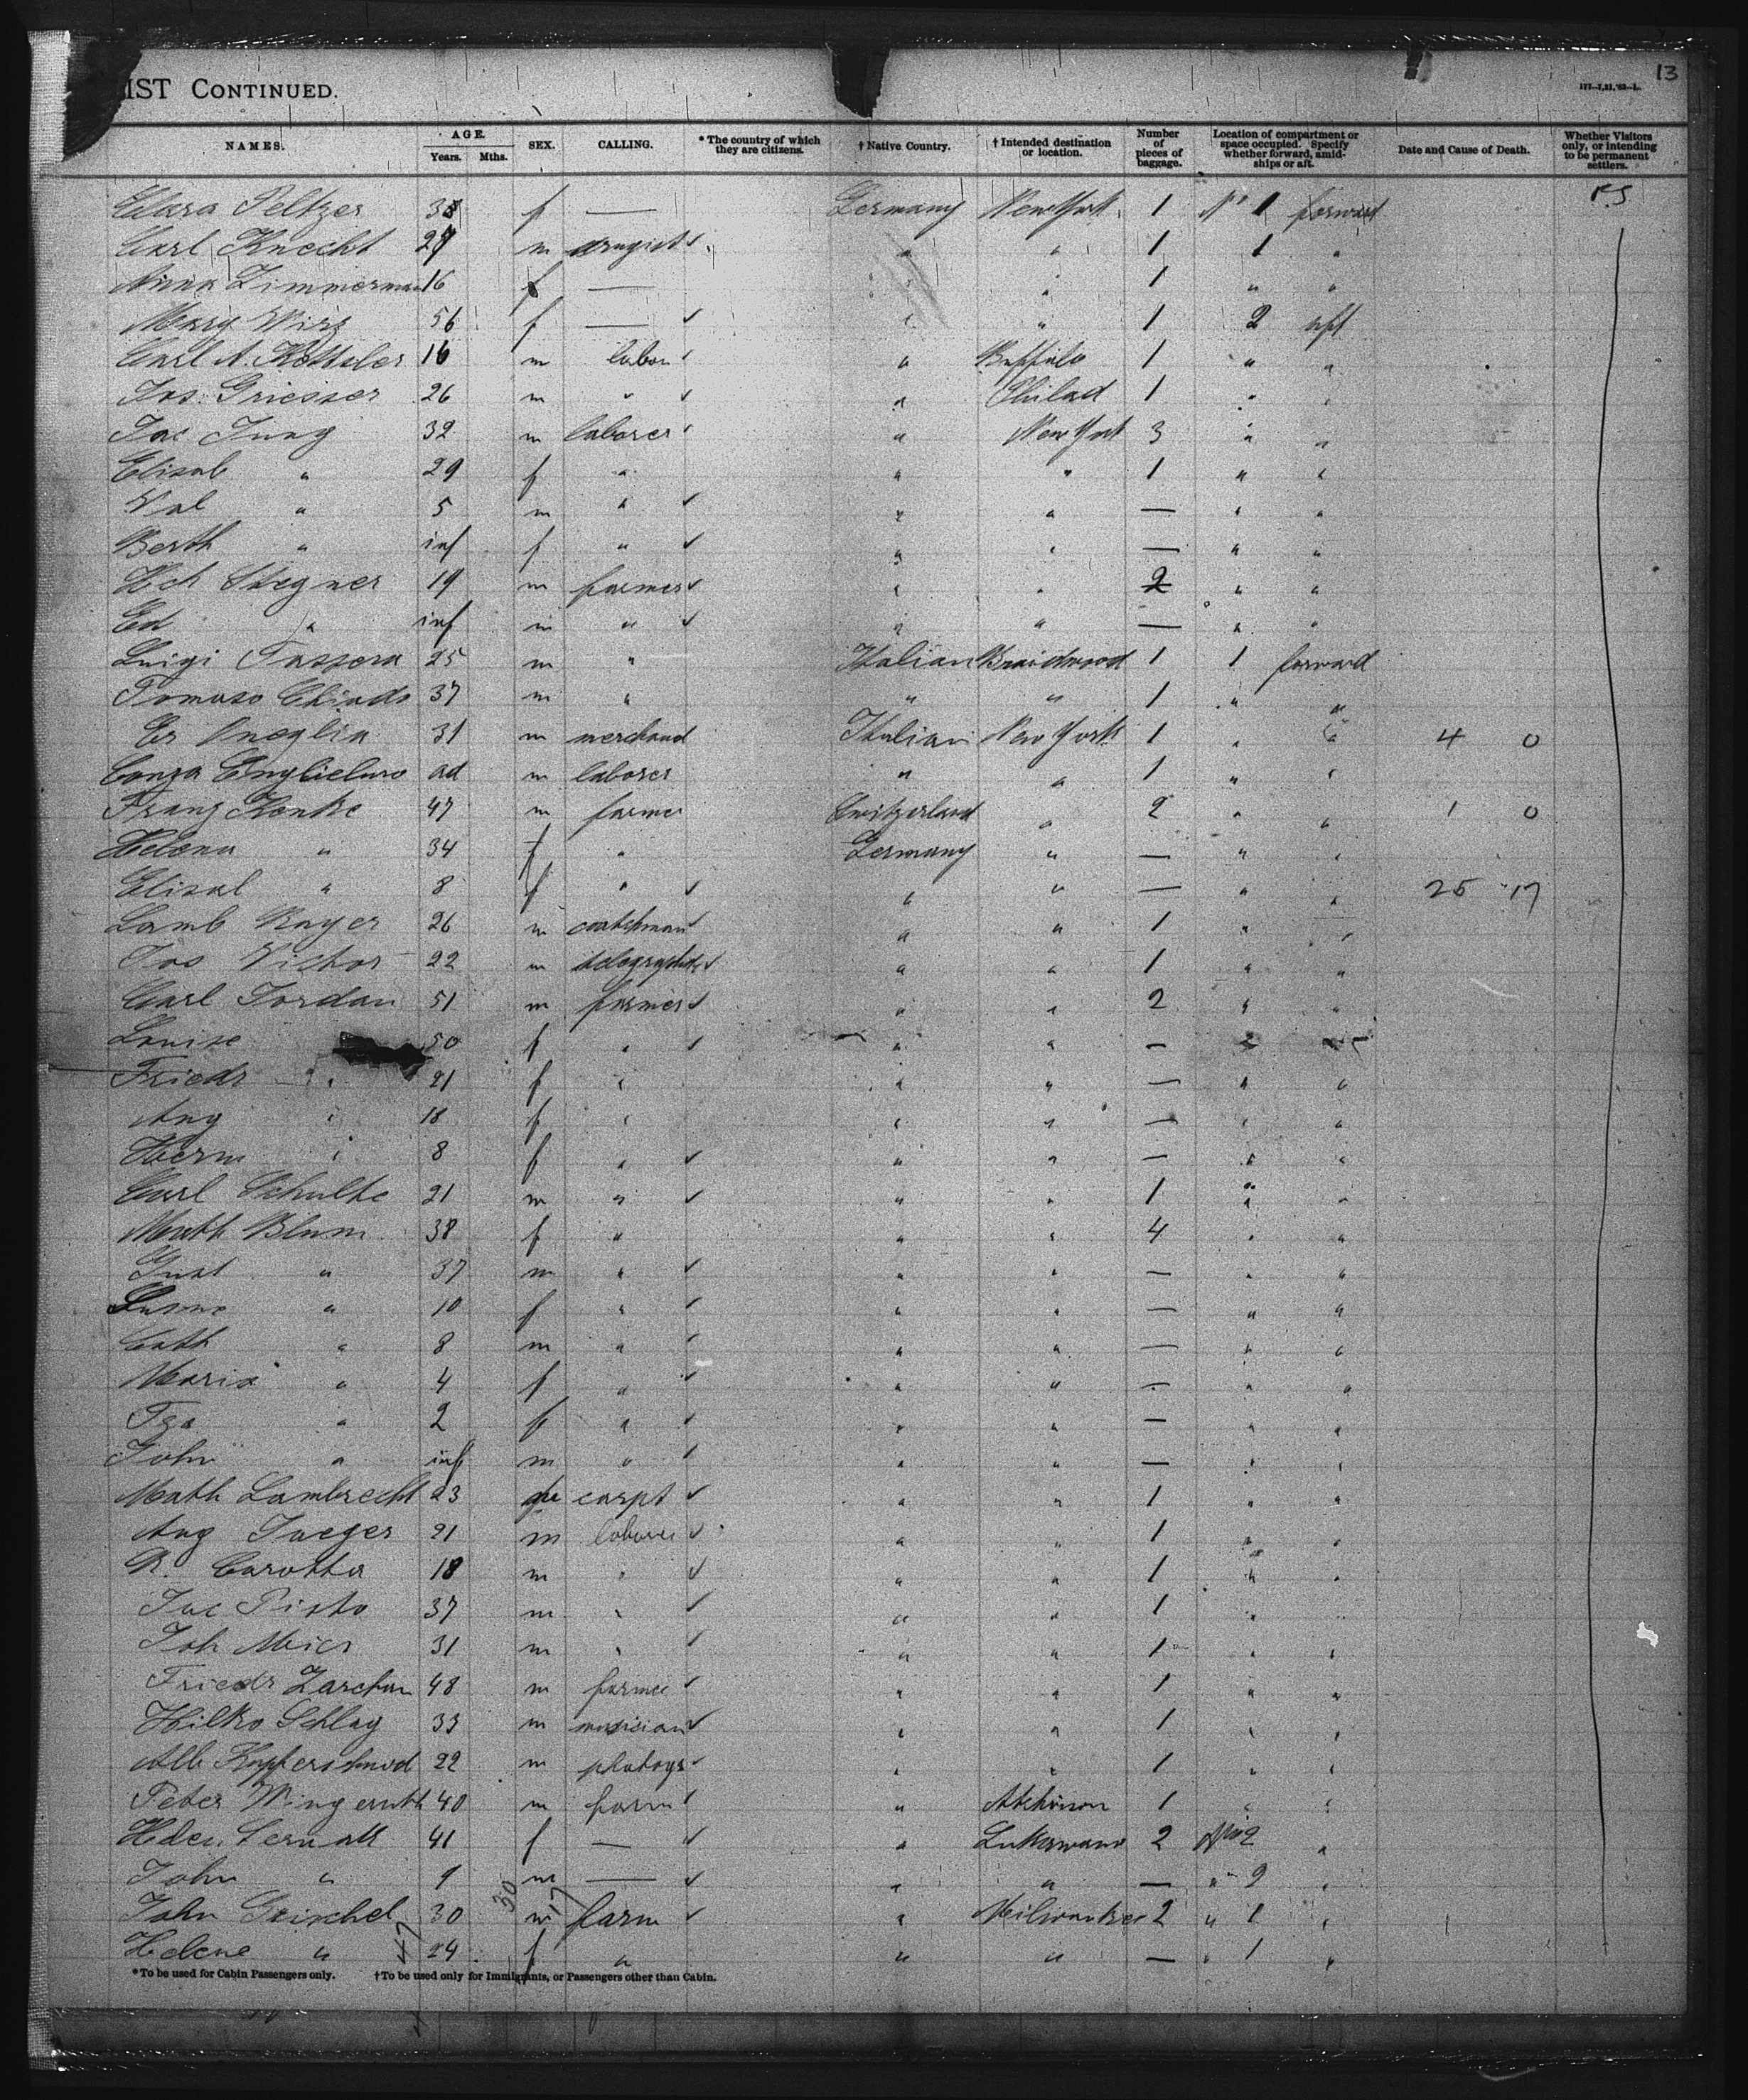 13
IST CONTINUED.
NAMES. AGE. Years. Mths. SEX. CALLING. * The country of which they are citizens. † Native Country. † Intended destination or location. Number of pieces of baggage. Location of compartment or space occupied. Specify whether forward, amidships or aft. Date and Cause of Death. Whether Visitors only, or intending to be permanent settlers.
Clara Peltzer f — Germany New York 1 No 1 forward
Carl Knecht m drugist ✓ " " 1 1 "
Anna Zimmerman 16 f — " " 1 " "
Mary Wirz 56 f — ✓ " " 1 2 aft
Carl A. 16 m labor " Buffalo 1 " "
Jos. Griesser 26 m " ✓ " Philad 1 " "
Jac Jung 32 m laborer " New York 3 " "
Elisab " 29 f " " " 1 " "
Val " 5 m " ✓ " " — " "
Berth " inf f " ✓ " " — " "
Hch Stegner 19 m farmer ✓ " " 2 " "
Ed " inf m " ✓ " " — " "
Luigi Tassera 25 m " Italian Braidwood 1 1 forward
Tomaso 37 m " " " 1 " "
31 m merchand Italian New York 1 " " 4 0
ad m laborer " " 1 " "
Franz 47 m farmer Switzerland " 2 " " 1 0
Helena " 34 f " Germany " — " "
Elisab " 8 f " ✓ " " — " " 25 17
Lamb Bayer 26 m coatchman ✓ " " 1 " "
Jos Victor 22 m ✓ " " 1 " "
Carl Jordan 51 m farmer ✓ " " 2 " "
Louise 50 f " ✓ " " — " "
Friedr " 21 f " " " — " "
Aug " 18 f " " " — " "
Herm " 8 f " ✓ " " — " "
Carl Schulte 21 m " ✓ " " 1 " "
Math Blum 38 f " " " 4 " "
Gust " 37 m " ✓ " " — " "
" 10 f " ✓ " " — " "
Cath " 8 m " ✓ " " — " "
Maria " 4 f " ✓ " " — " "
" 2 f " ✓ " " — " "
John " inf m " ✓ " " — " "
Math Lambrecht 23 carpt ✓ " " 1 " "
Aug Jaeger 21 m laborer ✓ " " 1 " "
R. Carotta 18 m " ✓ " " 1 " "
Jac Pisto 37 m " ✓ " " 1 " "
Joh Meier 31 m " ✓ " " 1 " "
Friedr 48 m farmer ✓ " " 1 " "
Hilko Schlag 33 m musician ✓ " " 1 " "
Alb Kupferschmid 22 m photogr ✓ " " 1 " "
Peter 40 m farm ✓ " Atchinson 1 " "
41 f — ✓ " 2 No 2 "
John " 9 m — ✓ " " — " 2 "
John 30 m farm ✓ " Milwaukee 2 " 1 "
Helene " 24 f " " " — " 1 "
30 17
47
*To be used for Cabin Passengers only. †To be used only for Immigrants, or Passengers other than Cabin.